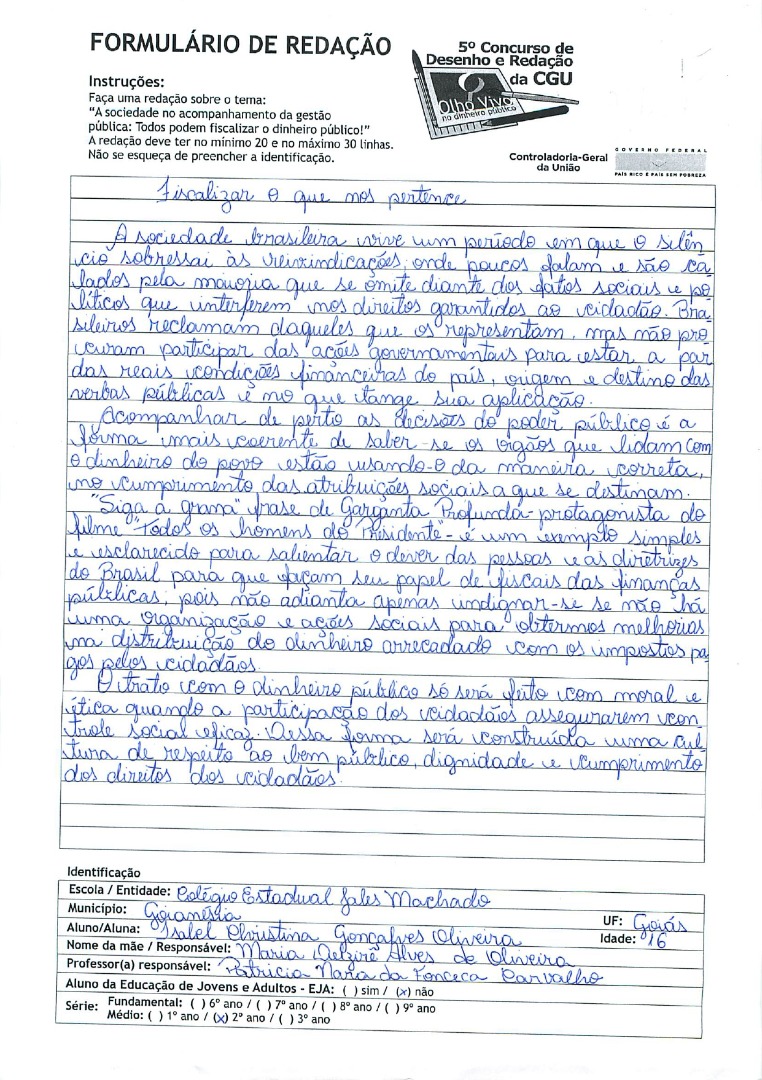 FORMULÁRIO DE REDAÇÃO
5º Concurso de
Desenho e Redação
da CGU
Olho Vivo
no dinheiro público
Instruções:
Faça uma redação sobre o tema:
"A sociedade no acompanhamento da gestão
pública: Todos podem fiscalizar o dinheiro público!"
A redação deve ter no mínimo 20 e no máximo 30 linhas.
Não se esqueça de preencher a identificação.
Controladoria-Geral
da União
GOVERNO FEDERAL
PAÍS RICO É PAÍS SEM POBREZA
Fiscalizar o que nos pertence
A sociedade brasileira vive um período em que o silên
cio sobressai às reivindicações, onde poucos falam e são ca
lados pela maioria que se omite diante dos fatos sociais e po
líticos que interferem nos direitos garantidos ao cidadão. Bra
sileiros reclamam daqueles que os representam, mas não pro
curam participar das ações governamentais para estar a par
das reais condições financeiras do país, origem e destino das
verbas públicas e no que tange sua aplicação.
Acompanhar de perto as decisões do poder público é a
forma mais coerente de saber-se os órgãos que lidam com
o dinheiro do povo estão usando-o da maneira correta,
no cumprimento das atribuições sociais a que se destinam.
"Siga a grana" frase de Garganta Profunda - protagonista do
filme "Todos os homens do Presidente" - é um exemplo simples
e esclarecido para salientar o dever das pessoas e as diretrizes
do Brasil para que façam seu papel de fiscais das finanças
públicas, pois não adianta apenas indignar-se se não há
uma organização e ações sociais para obtermos melhorias
na distribuição do dinheiro arrecadado com os impostos pa
gos pelos cidadãos.
O trato com o dinheiro público só será feito com moral e
ética quando a participação dos cidadãos assegurarem con
trole social eficaz. Dessa forma será construída uma cul
tura de respeito ao bem público, dignidade e cumprimento
dos direitos dos cidadãos.
Identificação
Escola / Entidade: Colégio Estadual Jales Machado
Município: Goianésia UF: Goiás
Aluno/Aluna: Isabel Christina Gonçalves Oliveira Idade: 16
Nome da mãe / Responsável: Maria Delzirê Alves de Oliveira
Professor(a) responsável: Patricia Nara da Fonceca Carvalho
Aluno da Educação de Jovens e Adultos - EJA: ( ) sim / (x) não
Série: Fundamental: ( ) 6º ano / ( ) 7º ano / ( ) 8º ano / ( ) 9º ano
Médio: ( ) 1º ano / (x) 2º ano / ( ) 3º ano